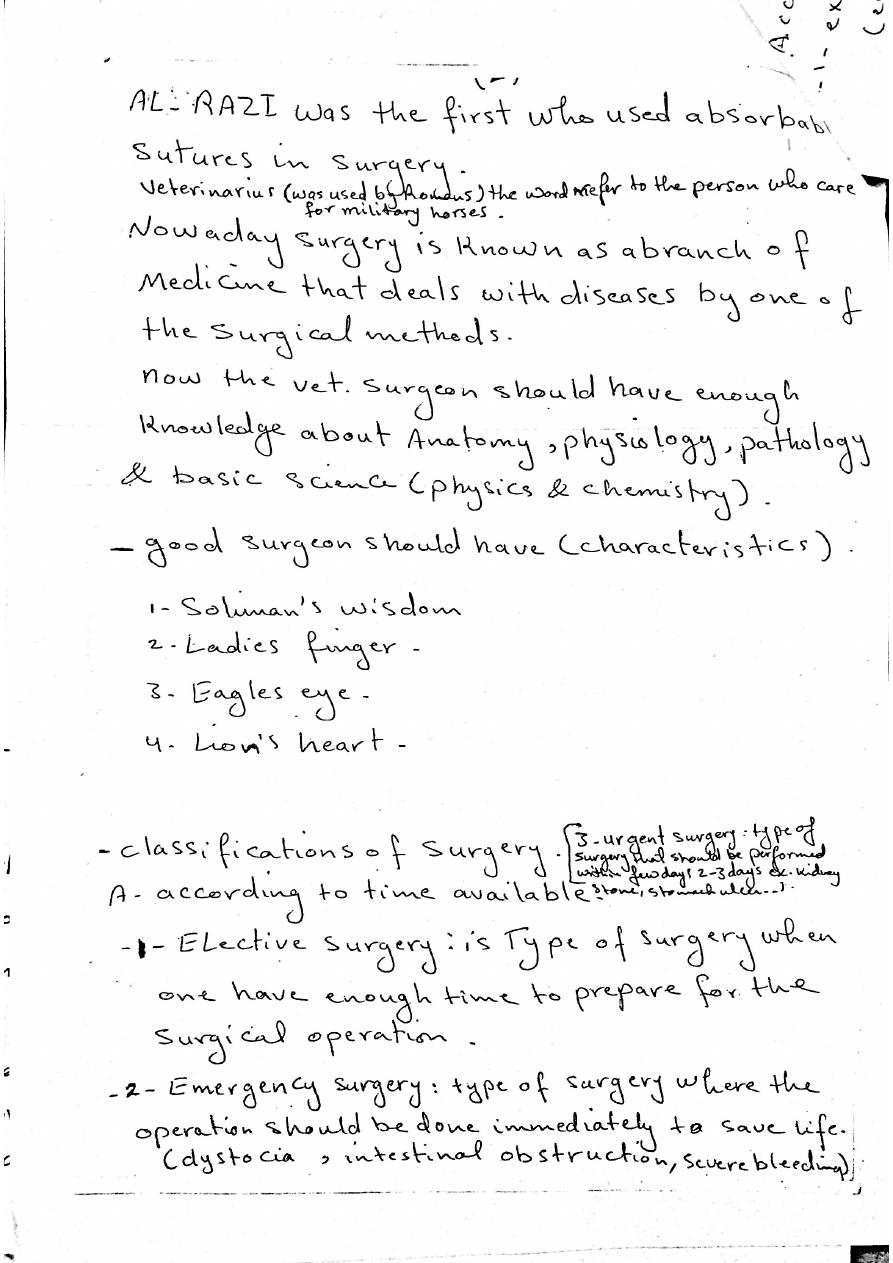 AL-RAZI was the first who used absorbabl
Sutures in surgery.
Veterinarius (was used by Romans) the word refer to the person who care
for military horses.
Nowaday surgery is known as abranch of
Medicine that deals with diseases by one of
the surgical methods.
now the vet. surgeon should have enough
Knowledge about Anatomy, physiology, pathology
& basic science (physics & chemistry).
- good surgeon should have (characteristics).
1- Soliman's wisdom
2- Ladies finger -
3- Eagles eye -
4- Lion's heart -
- classifications of surgery.
A- according to time available
[3-urgent surgery: type of
surgery that should be performed
within few days 2-3 days ex. kidney
stone, stomach ulcer...).
-1- Elective surgery: is Type of surgery when
one have enough time to prepare for the
surgical operation.
-2- Emergency surgery: type of surgery where the
operation should be done immediately to save life.
(dystocia, intestinal obstruction, severe bleeding)
Acc
-1- ex